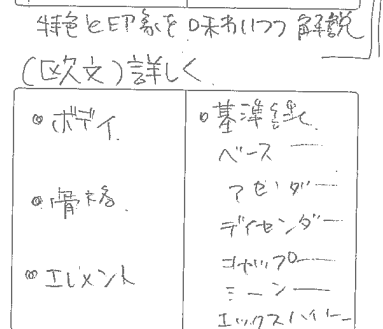 特色と印象を味わいつつ解説
(欧文)詳しく
・ボディ
・骨格
・エレメント
・基準線
ベース―
アセンダー
ディセンダー
キャップ―
ミーン―
エックスハイト